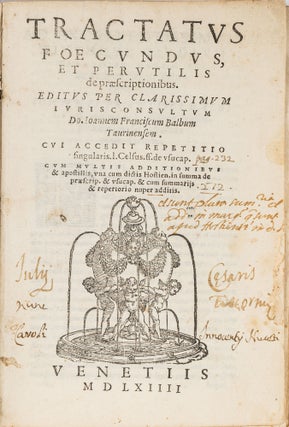 TRACTATVS
FOECVNDVS,
ET PERVTILIS
de præscriptionibus.
EDITVS PER CLARISSIMVM
IVRISCONSVLTVM
Do. Ioannem Franciscum Balbum
Taurinensem.
CVI ACCEDIT REPETITIO
singularis. l. Celsus. ff. de vsucap. pag. 232
CVM MVLTIS ADDITIONIBVS
& apostillis, vna cum dictis Hostien. in summa de
præscrip. & vsucap. & cum summarijs
& repertorio nuper additis.
Iulij
Cæsaris
nunc
Caroli
Innocentij
VENETIIS
MDLXIIII